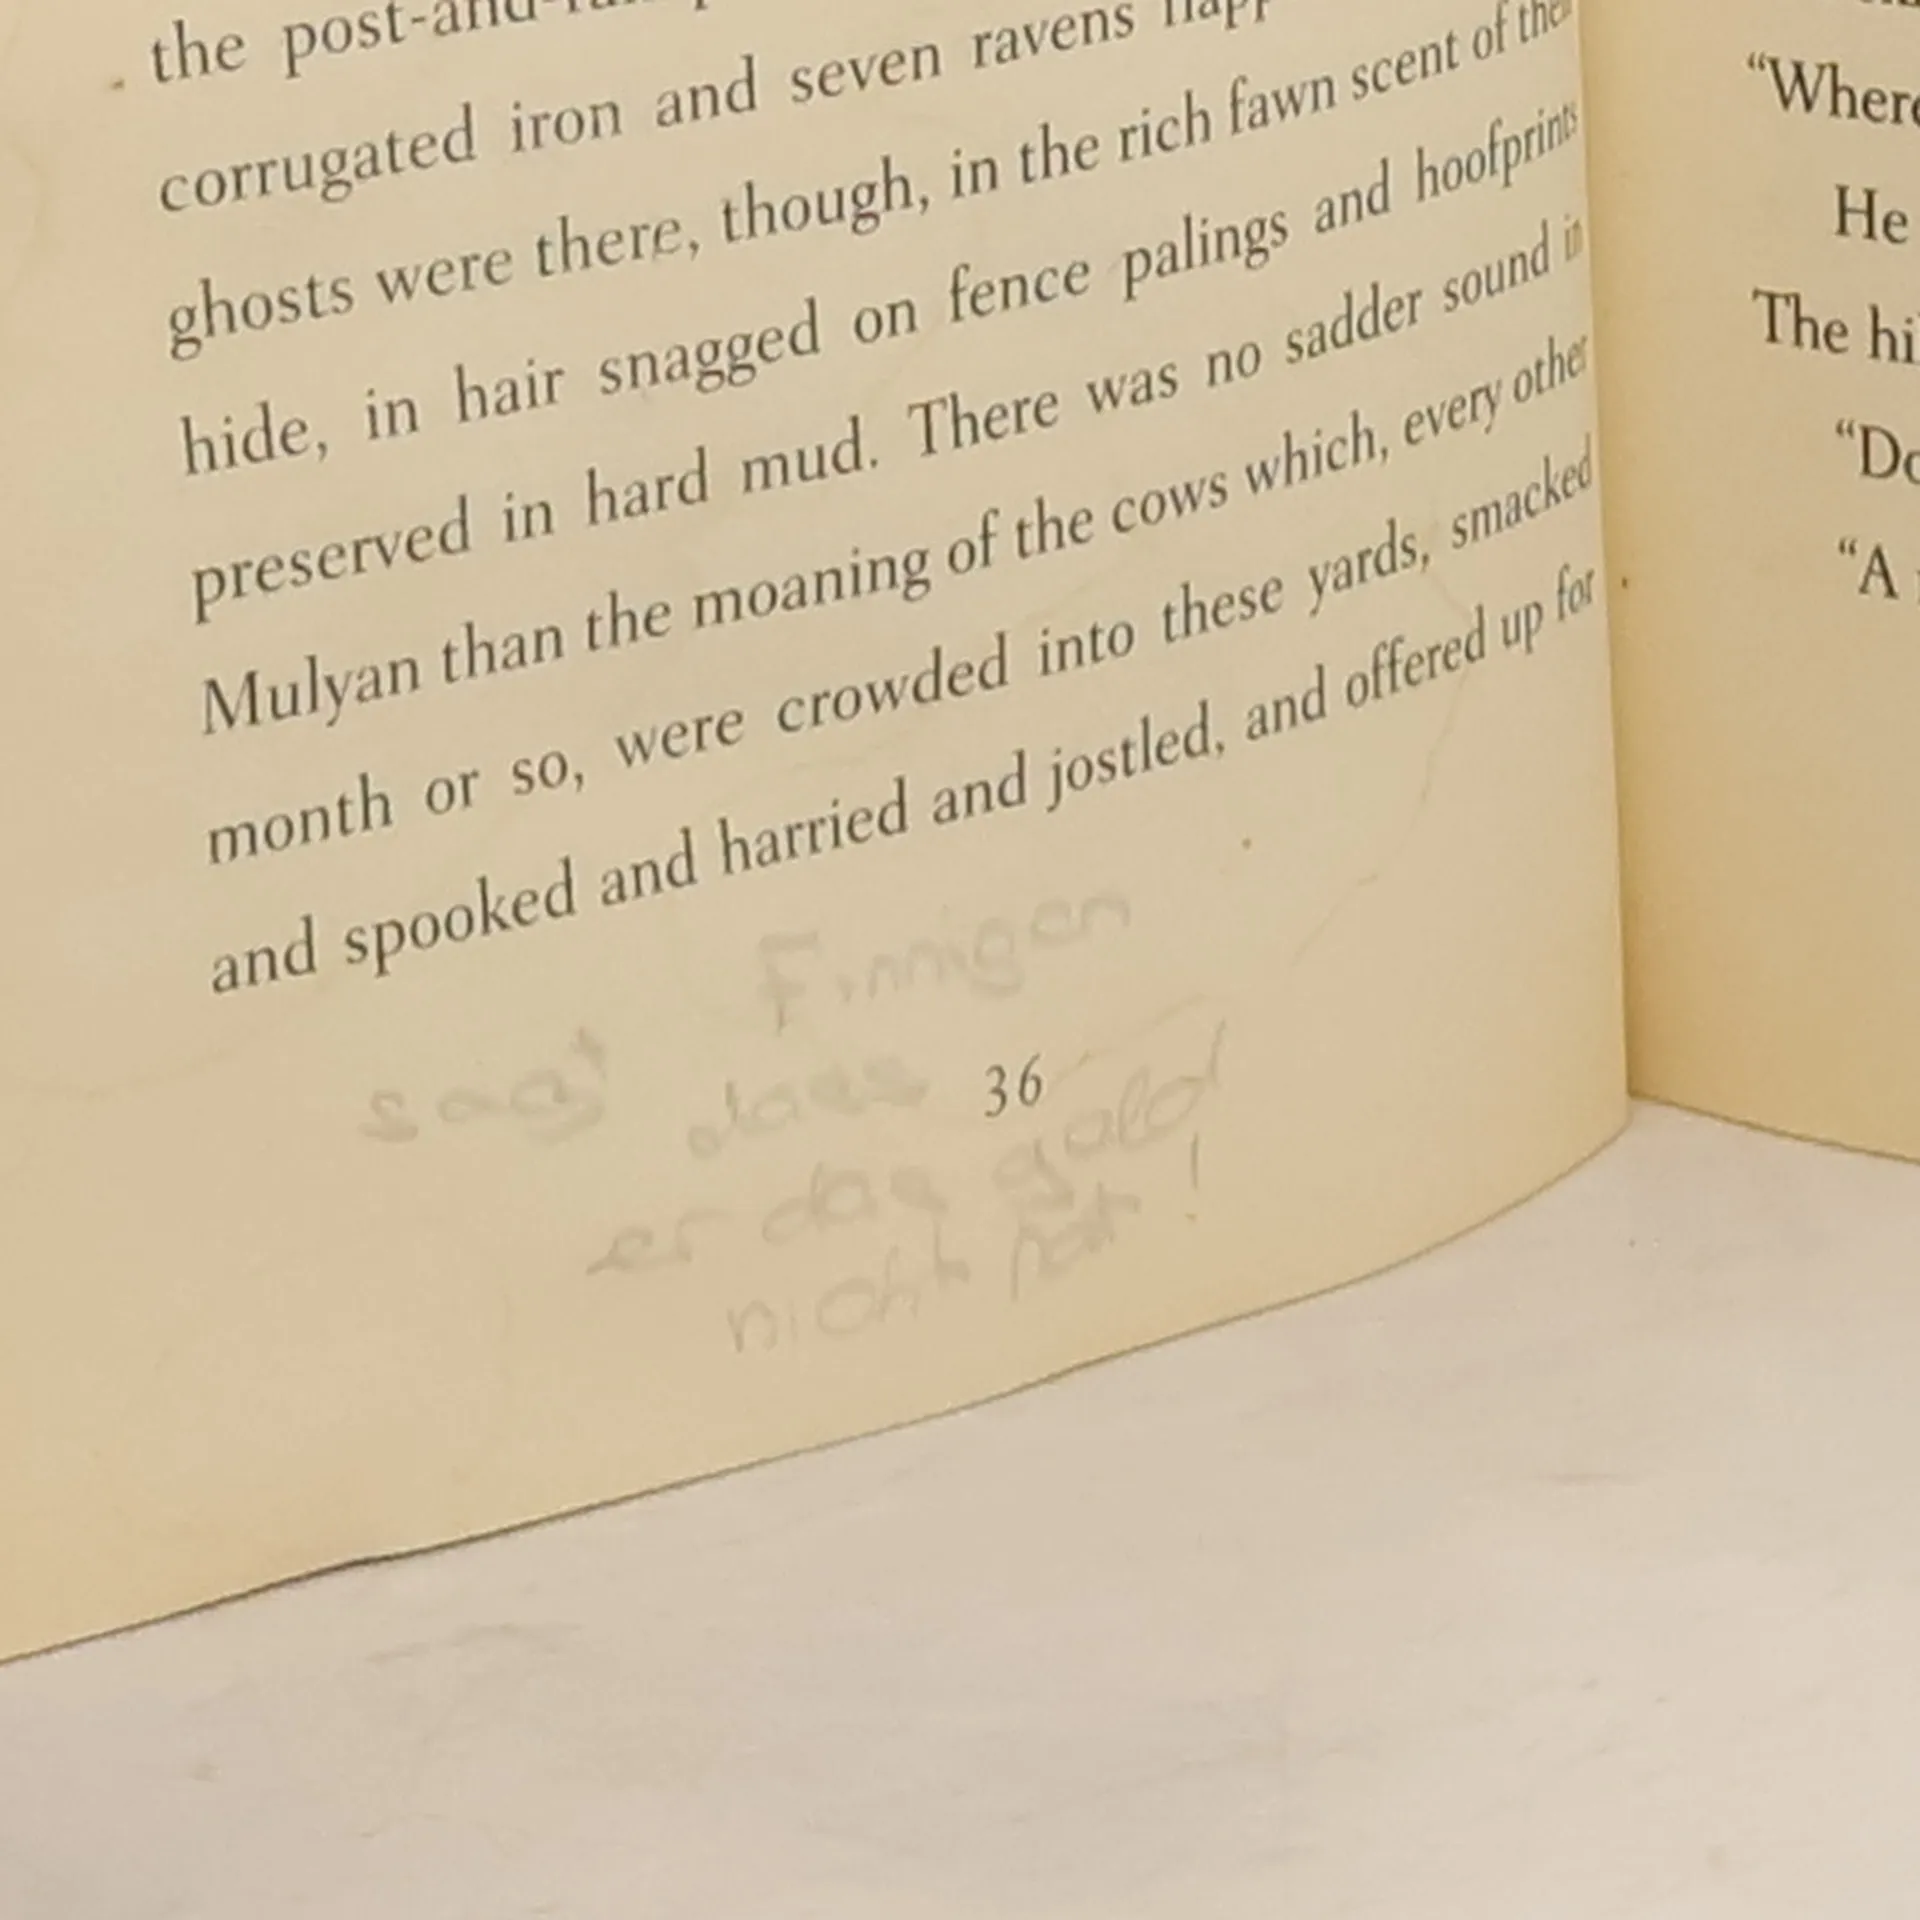 the post-and-
corrugated iron and seven ravens
ghosts were there, though, in the rich fawn scent of the
hide, in hair snagged on fence palings and hoofprints
preserved in hard mud. There was no sadder sound in
Mulyan than the moaning of the cows which, every other
month or so, were crowded into these yards, smacked
and spooked and harried and jostled, and offered up for
Finnigan
sagt dass
36
er das geld
nicht hat!
“Where
He
The
“A